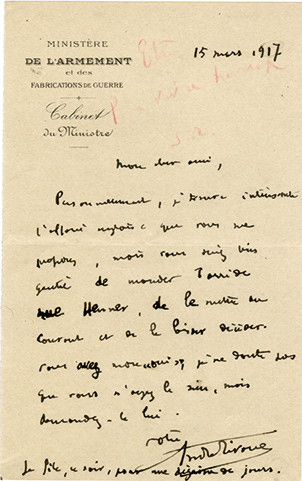 MINISTÈRE
DE L'ARMEMENT
et des
FABRICATIONS DE GUERRE
Cabinet
du Ministre
15 mars 1917
Mon cher ami,
Personnellement, je trouve intéressante
l'affaire que vous me
proposez, mais vous seriez bien
gentil de mander
rue Henner, de le mettre au
courant et de le laisser décider.
vous avez , je ne doute pas
que vous n'ayez le sien, mais
demandez-le lui.
votre
ce soir, pour une de jours.